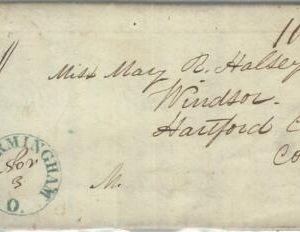 Miss Mary R. Halsey
Windsor.
Hartford C
Co
RMINGHAM
Nov
3
O.
M.